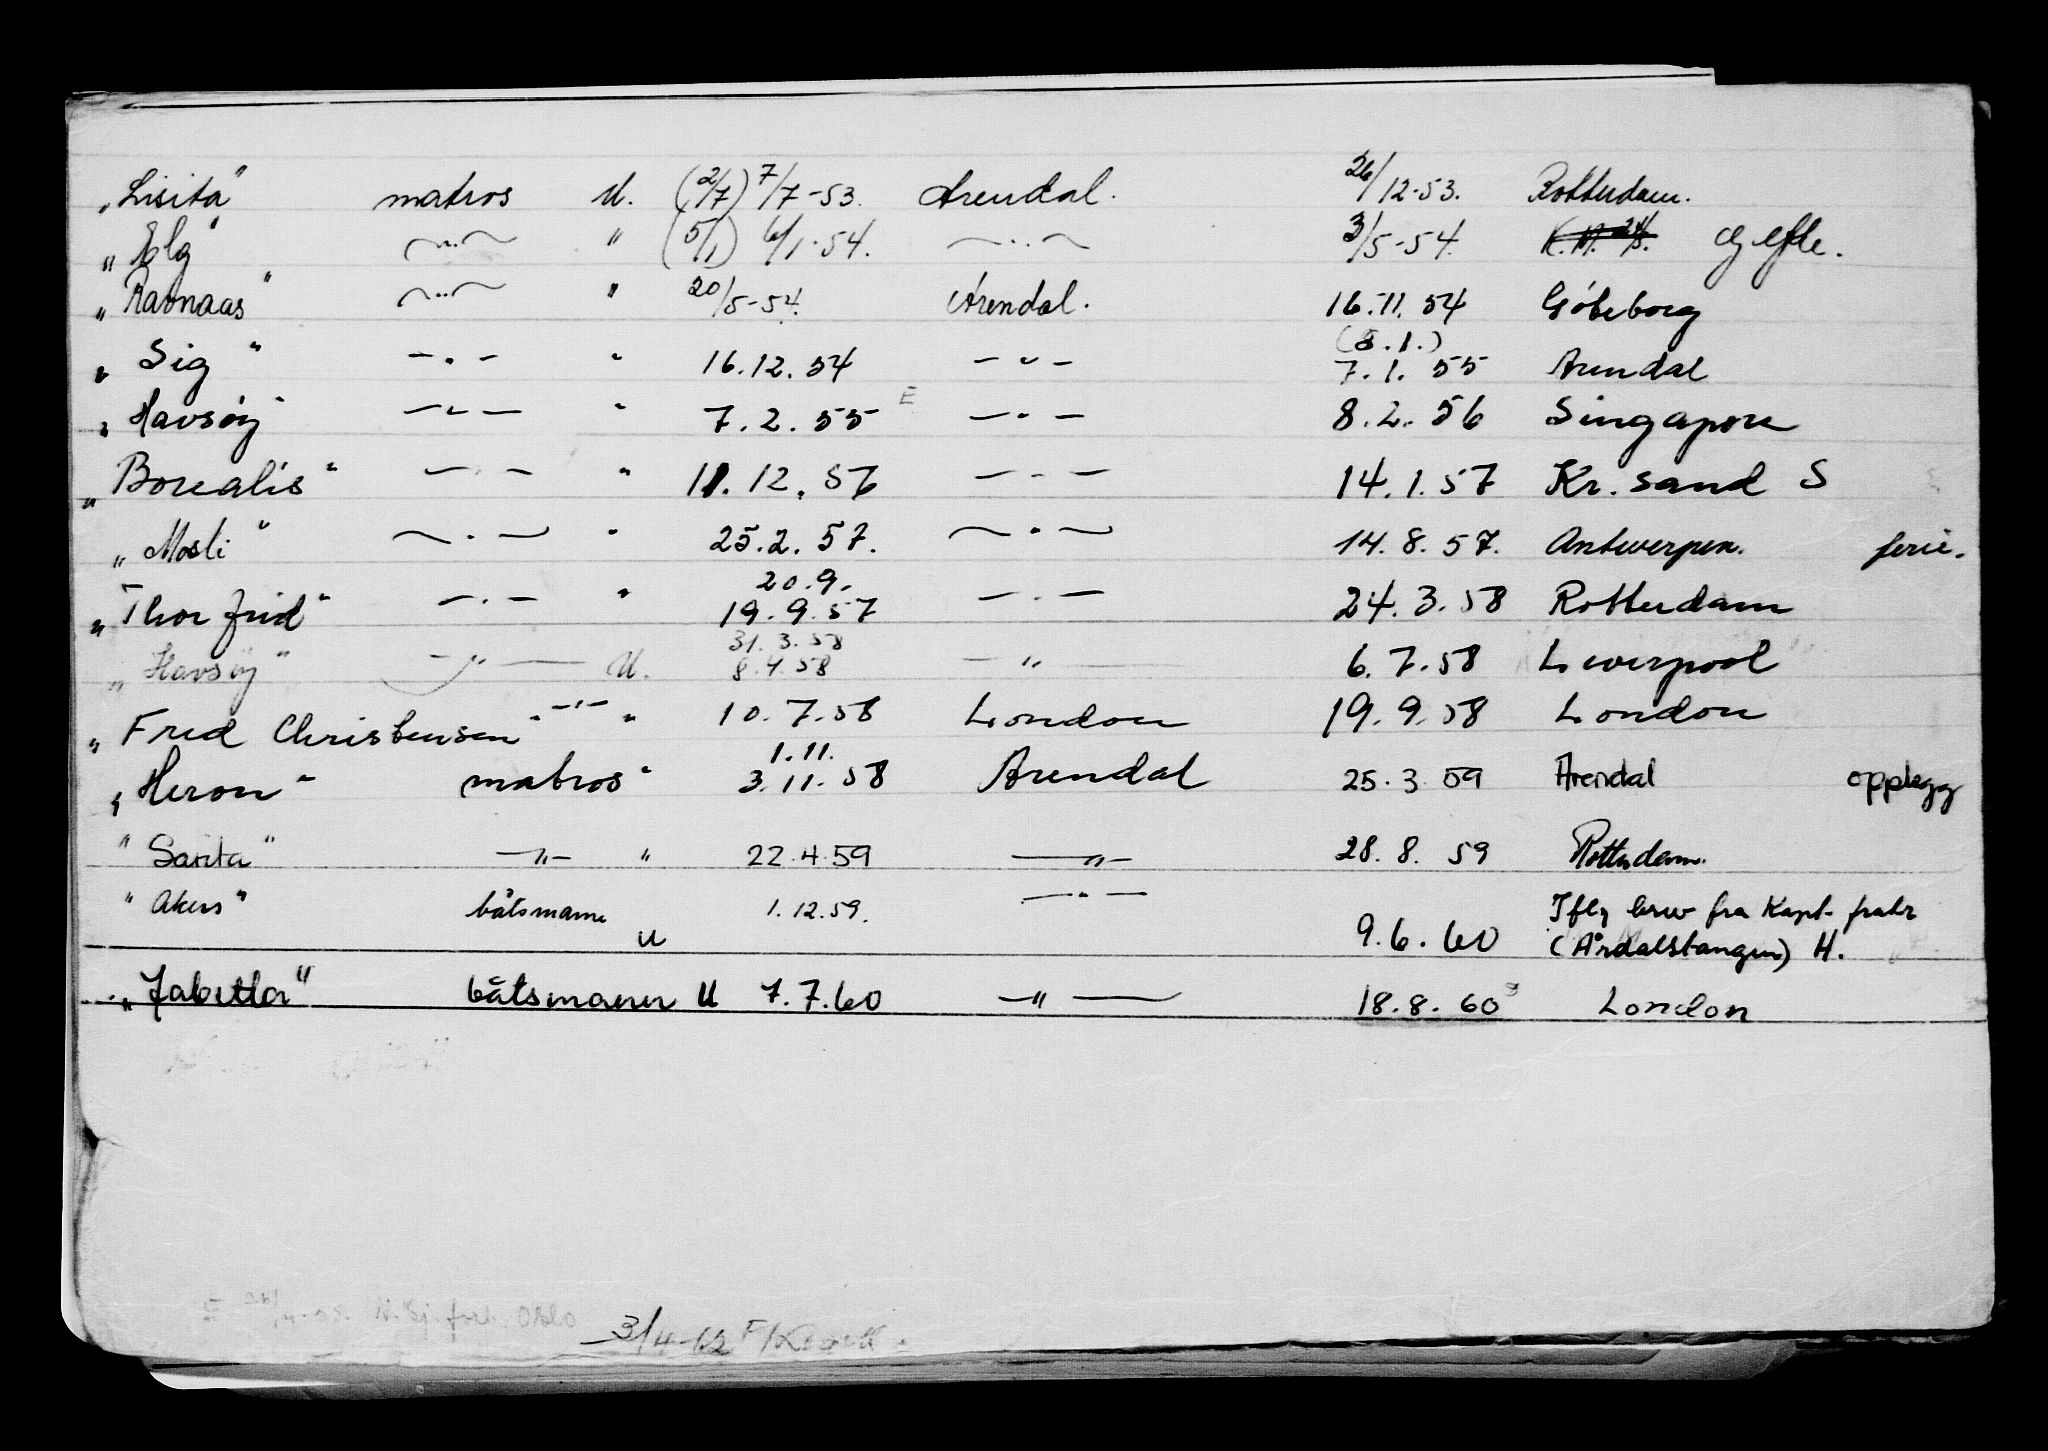 „Lisita" matros U. (2/7) 7/7-53. Arendal. 26/12-53. Rotterdam.
„Elg" —„— " (5/1) 6/1-54. —„— 3/5-54. og efte.
„Ravnaas" —„— " 20/5-54. Arendal. 16.11.54 Göteborg
(8.1.)
„Sig" —„— " 16.12.54 —„— 7.1.55 Arendal
E
„Havsøy" —„— " 7.2.55 —„— 8.2.56 Singapore
„Borealis" —„— " 11.12.56 —„— 14.1.57 Kr. sand S
„Mosli" —„— " 25.2.57. —„— 14.8.57. Antwerpen. ferie.
20.9.
„Thorfrid" —„— " 19.9.57 —„— 24.3.58 Rotterdam
31.3.58
„Havsøy" —„— U. 8.4.58 —„— 6.7.58 Liverpool
„Fred Christensen" —„— " 10.7.58 London 19.9.58 London
1.11.
„Heron" matros " 3.11.58 Arendal 25.3.59 Arendal opplegg
"Sarita" —„— " 22.4.59 —„— 28.8.59 Rotterdam.
"Akers" båtsmann U 1.12.59. —„— 9.6.60 Iflg brev fra Kapt.
(Årdalstangen) H.
båtsmann U 7.7.60 —„— 18.8.60 London
Oslo
3/4-62